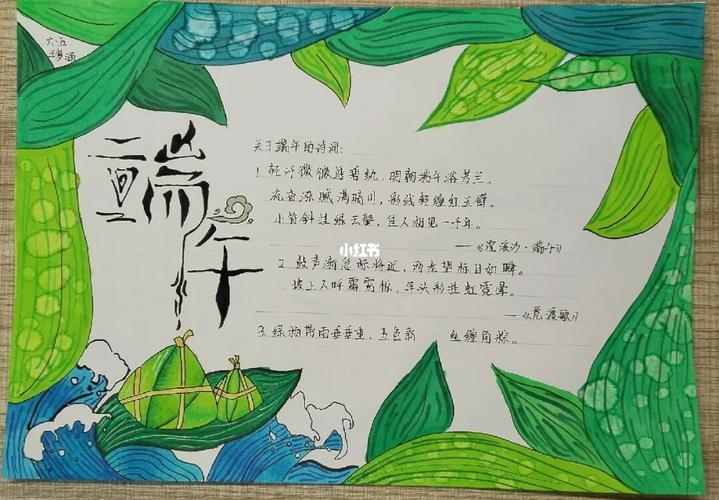 六·五
端午
关于端午的诗词:
1. 轻汗微微透碧纨,明朝端午浴芳兰。
流香涨腻满晴川,彩线轻缠红玉臂。
小符斜挂绿云鬟,佳人相见一千年。
——《浣溪沙·端午》
小红书
2. 鼓声渐急标将近,两龙望标目如瞬。
坡上人呼霹雳惊,竿头彩挂虹霓晕。
——《竞渡歌》
3. 绿杨带雨垂垂重,五色新 丝缠角粽。